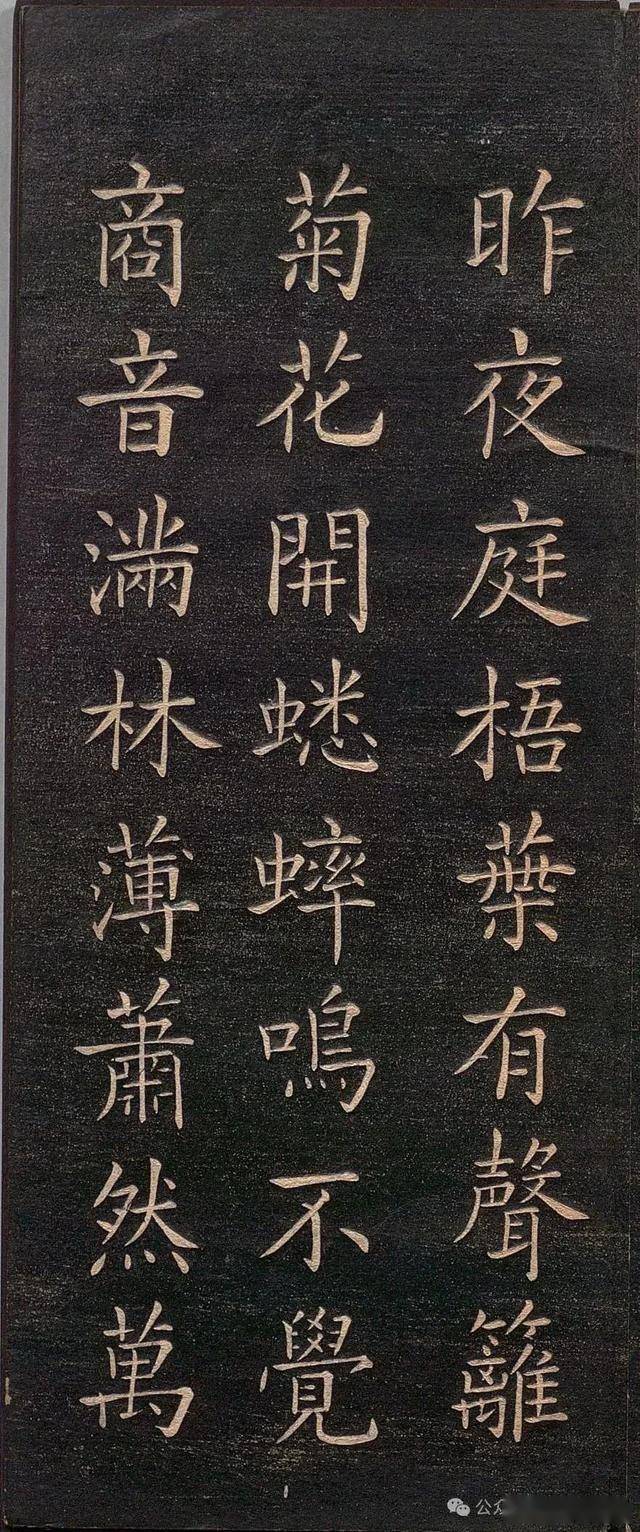 昨夜庭梧葉有聲籬
菊花開蟋蟀鳴不覺
商音滿林薄蕭然萬
公众